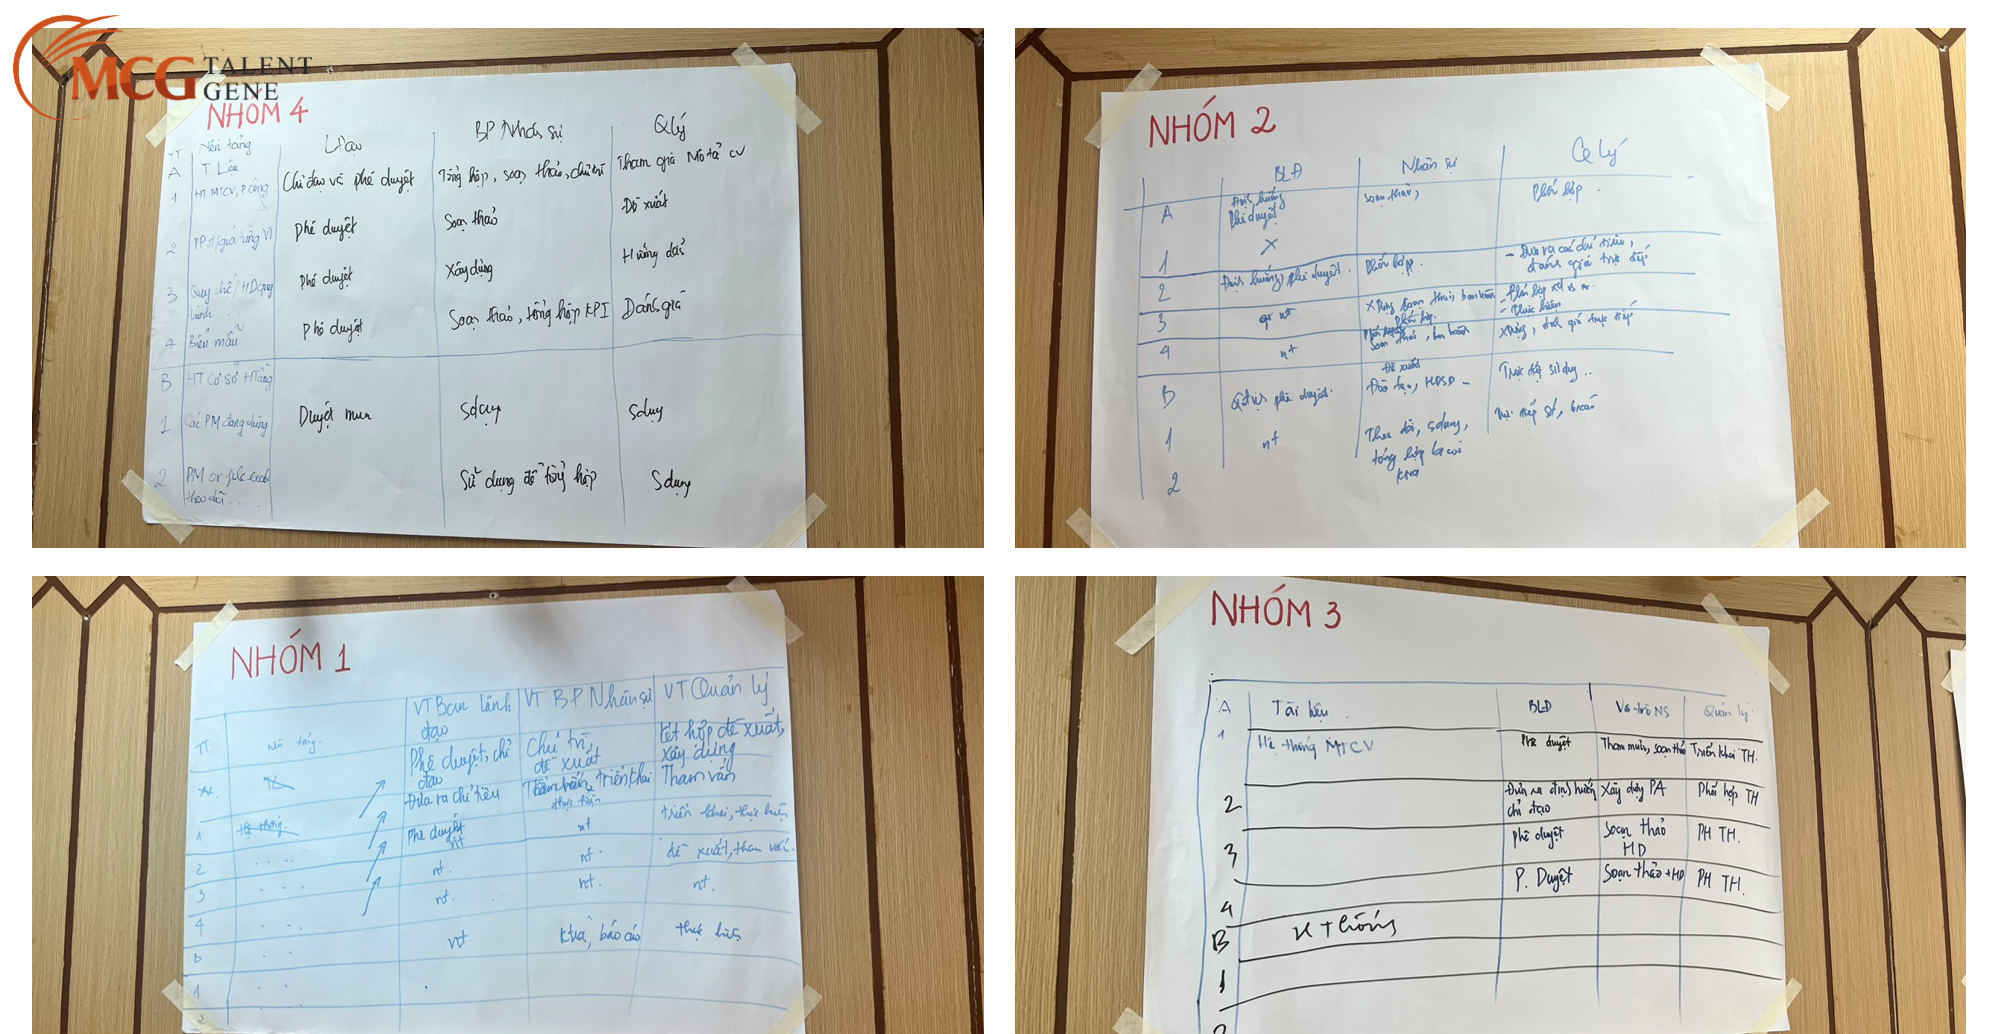 MCG TALENT
GENE
NHÓM 4
TT Nền tảng LĐạo BP Nhân sự QLý
A T. Liệu
1 HT MTCV, P công Chỉ đạo và phê duyệt Tổng hợp, soạn thảo, chủ trì Tham gia Mô tả CV
2 Phê duyệt Soạn thảo Đề xuất
3 Quy chế / HD Phê duyệt Xây dựng Hướng dẫn
4 Biểu mẫu Phê duyệt Soạn thảo, tổng hợp KPI Đánh giá
B HT Cơ sở HTầng
1 Các PM đang dùng Duyệt mua Sdụng Sdụng
2 PM or file excel Sử dụng để tổng hợp Sdụng
theo dõi ....
NHÓM 2
BLĐ Nhân sự QLý
A Định hướng Soạn thảo, Phối hợp.
Phê duyệt
1 X - Đưa ra các chỉ tiêu,
đánh giá trực tiếp
2 Định hướng, phê duyệt. Phối hợp.
- Thực hiện
3 nt
4 nt Soạn thảo, ban hành
Đề xuất
B phê duyệt. Đào tạo, HDSD -
1 nt Theo dõi, sdụng,
tổng hợp
2
NHÓM 1
VT Ban lãnh VT BP Nhân sự VT Quản lý
đạo
TT Nền tảng.
Phê duyệt, chỉ Chủ trì, kết hợp đề xuất,
đạo đề xuất xây dựng
A. TL Đưa ra chỉ tiêu triển khai Tham vấn
thực hiện
1 Hệ thống. Phê duyệt nt triển khai, thực hiện
nt
2 .... nt. nt. đề xuất, tham vấn.
3 ... nt. nt. nt.
4 . . nt Ktra, báo cáo thực hiện
B . .
1 . .
2
NHÓM 3
A Tài liệu. BLĐ Vai trò NS Quản lý
1 Hệ thống MTCV Phê duyệt Tham mưu, soạn thảo Triển khai TH.
2 Đưa ra định hướng Xây dựng PA Phối hợp TH
chỉ đạo
3 Phê duyệt Soạn thảo PH TH.
HD
4 P. Duyệt Soạn thảo + HD PH TH.
B H Thống
1
2